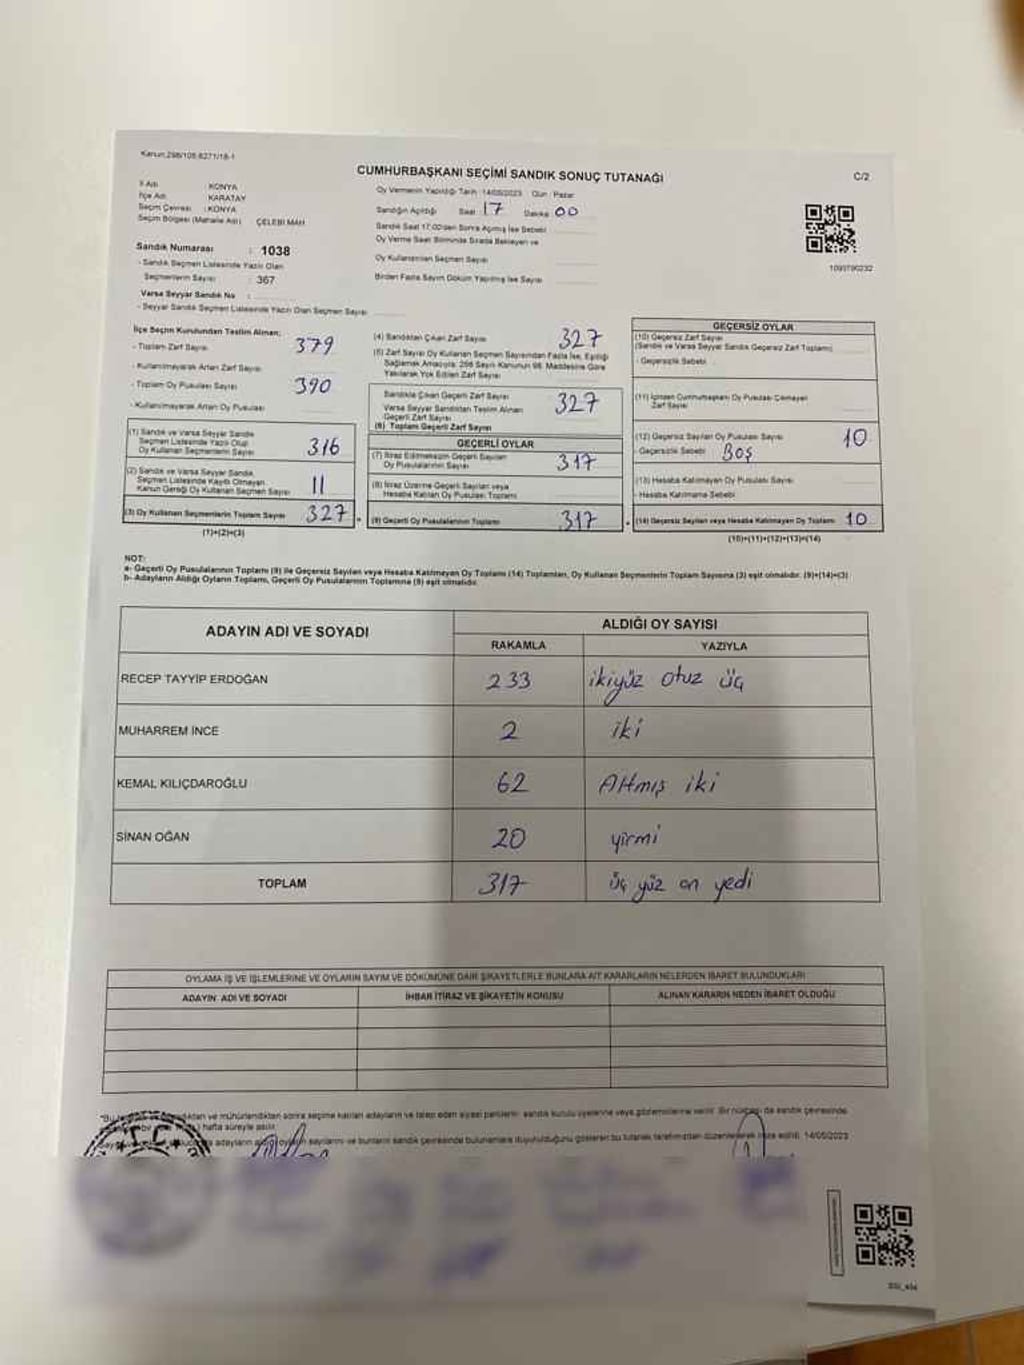 Kanun:298/105;6271/18-1
CUMHURBAŞKANI SEÇİMİ SANDIK SONUÇ TUTANAĞI
C/2
İl Adı : KONYA
İlçe Adı : KARATAY
Seçim Çevresi : KONYA
Seçim Bölgesi (Mahalle Adı) : ÇELEBİ MAH
Sandık Numarası : 1038
- Sandık Seçmen Listesinde Yazılı Olan
Seçmenlerin Sayısı : 367
Varsa Seyyar Sandık No :
- Seyyar Sandık Seçmen Listesinde Yazılı Olan Seçmen Sayısı
Oy Vermenin Yapıldığı Tarih : 14/05/2023 Gün : Pazar
Sandığın Açıldığı Saat 17 Dakika 00
Sandık Saat 17.00'den Sonra Açılmış İse Sebebi
Oy Verme Saat Bitiminde Sırada Bekleyen ve
Oy Kullandırılan Seçmen Sayısı
Birden Fazla Sayım Döküm Yapılmış İse Sayısı
1093790232
İlçe Seçim Kurulundan Teslim Alınan:
- Toplam Zarf Sayısı 379
- Kullanılmayarak Artan Zarf Sayısı
- Toplam Oy Pusulası Sayısı 390
- Kullanılmayarak Artan Oy Pusulası
(1) Sandık ve Varsa Seyyar Sandık
Seçmen Listesinde Yazılı Olup
Oy Kullanan Seçmenlerin Sayısı 316
(2) Sandık ve Varsa Seyyar Sandık
Seçmen Listesinde Kayıtlı Olmayan
Kanun Gereği Oy Kullanan Seçmen Sayısı 11
(3) Oy Kullanan Seçmenlerin Toplam Sayısı 327
(1)+(2)=(3)
(4) Sandıktan Çıkan Zarf Sayısı 327
(5) Zarf Sayısı Oy Kullanan Seçmen Sayısından Fazla İse, Eşitliği
Sağlamak Amacıyla; 298 Sayılı Kanunun 98. Maddesine Göre
Yakılarak Yok Edilen Zarf Sayısı
Sandıkta Çıkan Geçerli Zarf Sayısı 327
Varsa Seyyar Sandıktan Teslim Alınan
Geçerli Zarf Sayısı
(6) Toplam Geçerli Zarf Sayısı
GEÇERLİ OYLAR
(7) İtiraz Edilmeksizin Geçerli Sayılan
Oy Pusulalarının Sayısı 317
(8) İtiraz Üzerine Geçerli Sayılan veya
Hesaba Katılan Oy Pusulası Toplamı
(9) Geçerli Oy Pusulalarının Toplamı 317
GEÇERSİZ OYLAR
(10) Geçersiz Zarf Sayısı
(Sandık ve Varsa Seyyar Sandık Geçersiz Zarf Toplamı)
- Geçersizlik Sebebi
(11) İçinden Cumhurbaşkanı Oy Pusulası Çıkmayan
Zarf Sayısı
(12) Geçersiz Sayılan Oy Pusulası Sayısı 10
- Geçersizlik Sebebi Boş
(13) Hesaba Katılmayan Oy Pusulası Sayısı
- Hesaba Katılmama Sebebi
(14) Geçersiz Sayılan veya Hesaba Katılmayan Oy Toplamı 10
(10)+(11)+(12)+(13)=(14)
NOT:
a- Geçerli Oy Pusulalarının Toplamı (9) ile Geçersiz Sayılan veya Hesaba Katılmayan Oy Toplamı (14) Toplamları, Oy Kullanan Seçmenlerin Toplam Sayısına (3) eşit olmalıdır. (9)+(14)=(3)
b- Adayların Aldığı Oyların Toplamı, Geçerli Oy Pusulalarının Toplamına (9) eşit olmalıdır.
ADAYIN ADI VE SOYADI
ALDIĞI OY SAYISI
RAKAMLA YAZIYLA
RECEP TAYYİP ERDOĞAN 233 ikiyüz otuz üç
MUHARREM İNCE 2 iki
KEMAL KILIÇDAROĞLU 62 Altmış iki
SİNAN OĞAN 20 yirmi
TOPLAM 317 üç yüz on yedi
OYLAMA İŞ VE İŞLEMLERİNE VE OYLARIN SAYIM VE DÖKÜMÜNE DAİR ŞİKAYETLERLE BUNLARA AİT KARARLARIN NELERDEN İBARET BULUNDUKLARI
ADAYIN ADI VE SOYADI İHBAR İTİRAZ VE ŞİKAYETİN KONUSU ALINAN KARARIN NEDEN İBARET OLDUĞU
ve mühürlendikten sonra seçime katılan adayların ve talep eden siyasi partilerin sandık kurulu üyelerine veya gözlemcilerine verilir. Bir nüshası da sandık çevresinde
hafta süreyle asılır.
adayların aldığı oyların sayılarını ve bunların sandık çevresinde bulunanlara duyurulduğunu gösteren bu tutanak tarafımızdan düzenlenerek imza edildi. 14/05/2023
T.C.